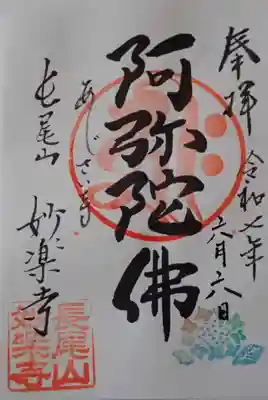 奉拝
令和七年
六月六日
阿弥陀佛
あじさい寺
長尾山
妙楽寺
長尾山
妙楽寺